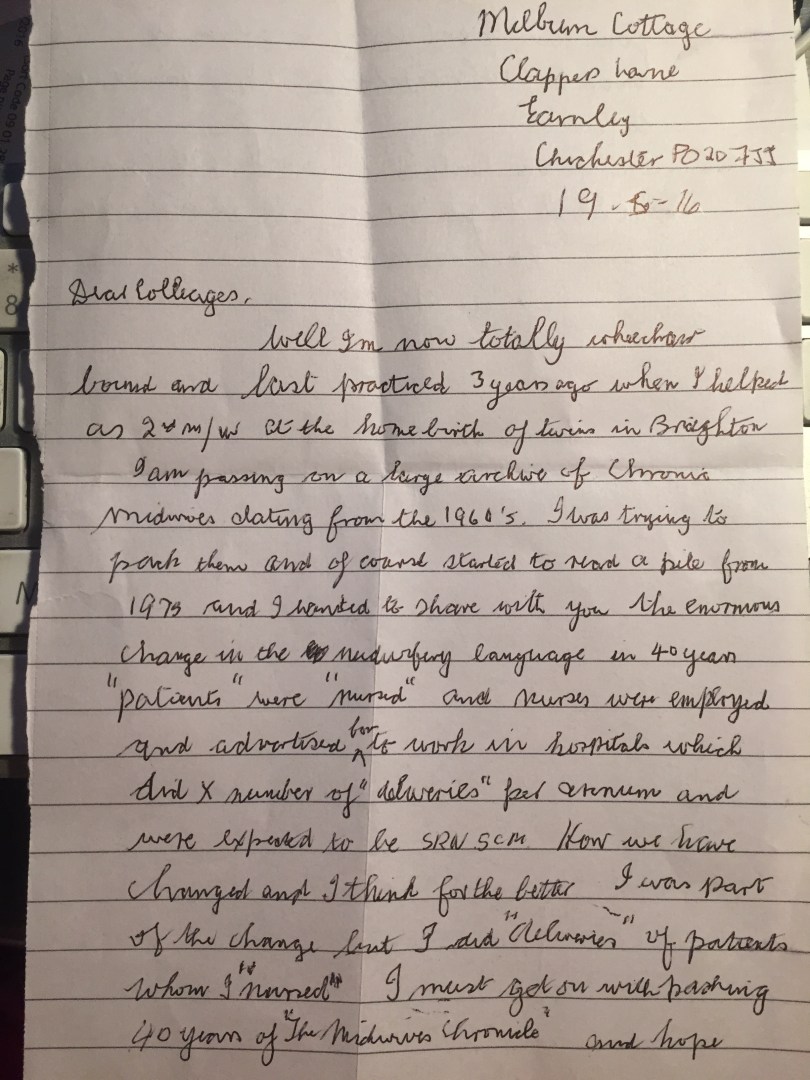 Cottage
Clappers Lane
Earnley
Chichester PO20 7JJ
19 - 16
Dear Colleages,
Well I'm now totally wheechair
bound and last practiced 3 years ago when I helped
as 2nd m/w at the home birth of twins in Brighton
I am passing on a large archive of Chronic
Midwives dating from the 1960's. I was trying to
pack them and of course started to read a pile from
1975 and I wanted to share with you the enormous
change in the midwifery language in 40 years
"patients" were "nursed" and nurses were employed
and advertised for to work in hospitals which
did X number of "deliveries" per annum and
were expected to be SRN SCM How we have
changed and I think for the better I was part
of the change but I did "deliveries" of patients
whom I "nursed" I must get on with packing
40 years of "The Midwives Chronicle" and hope